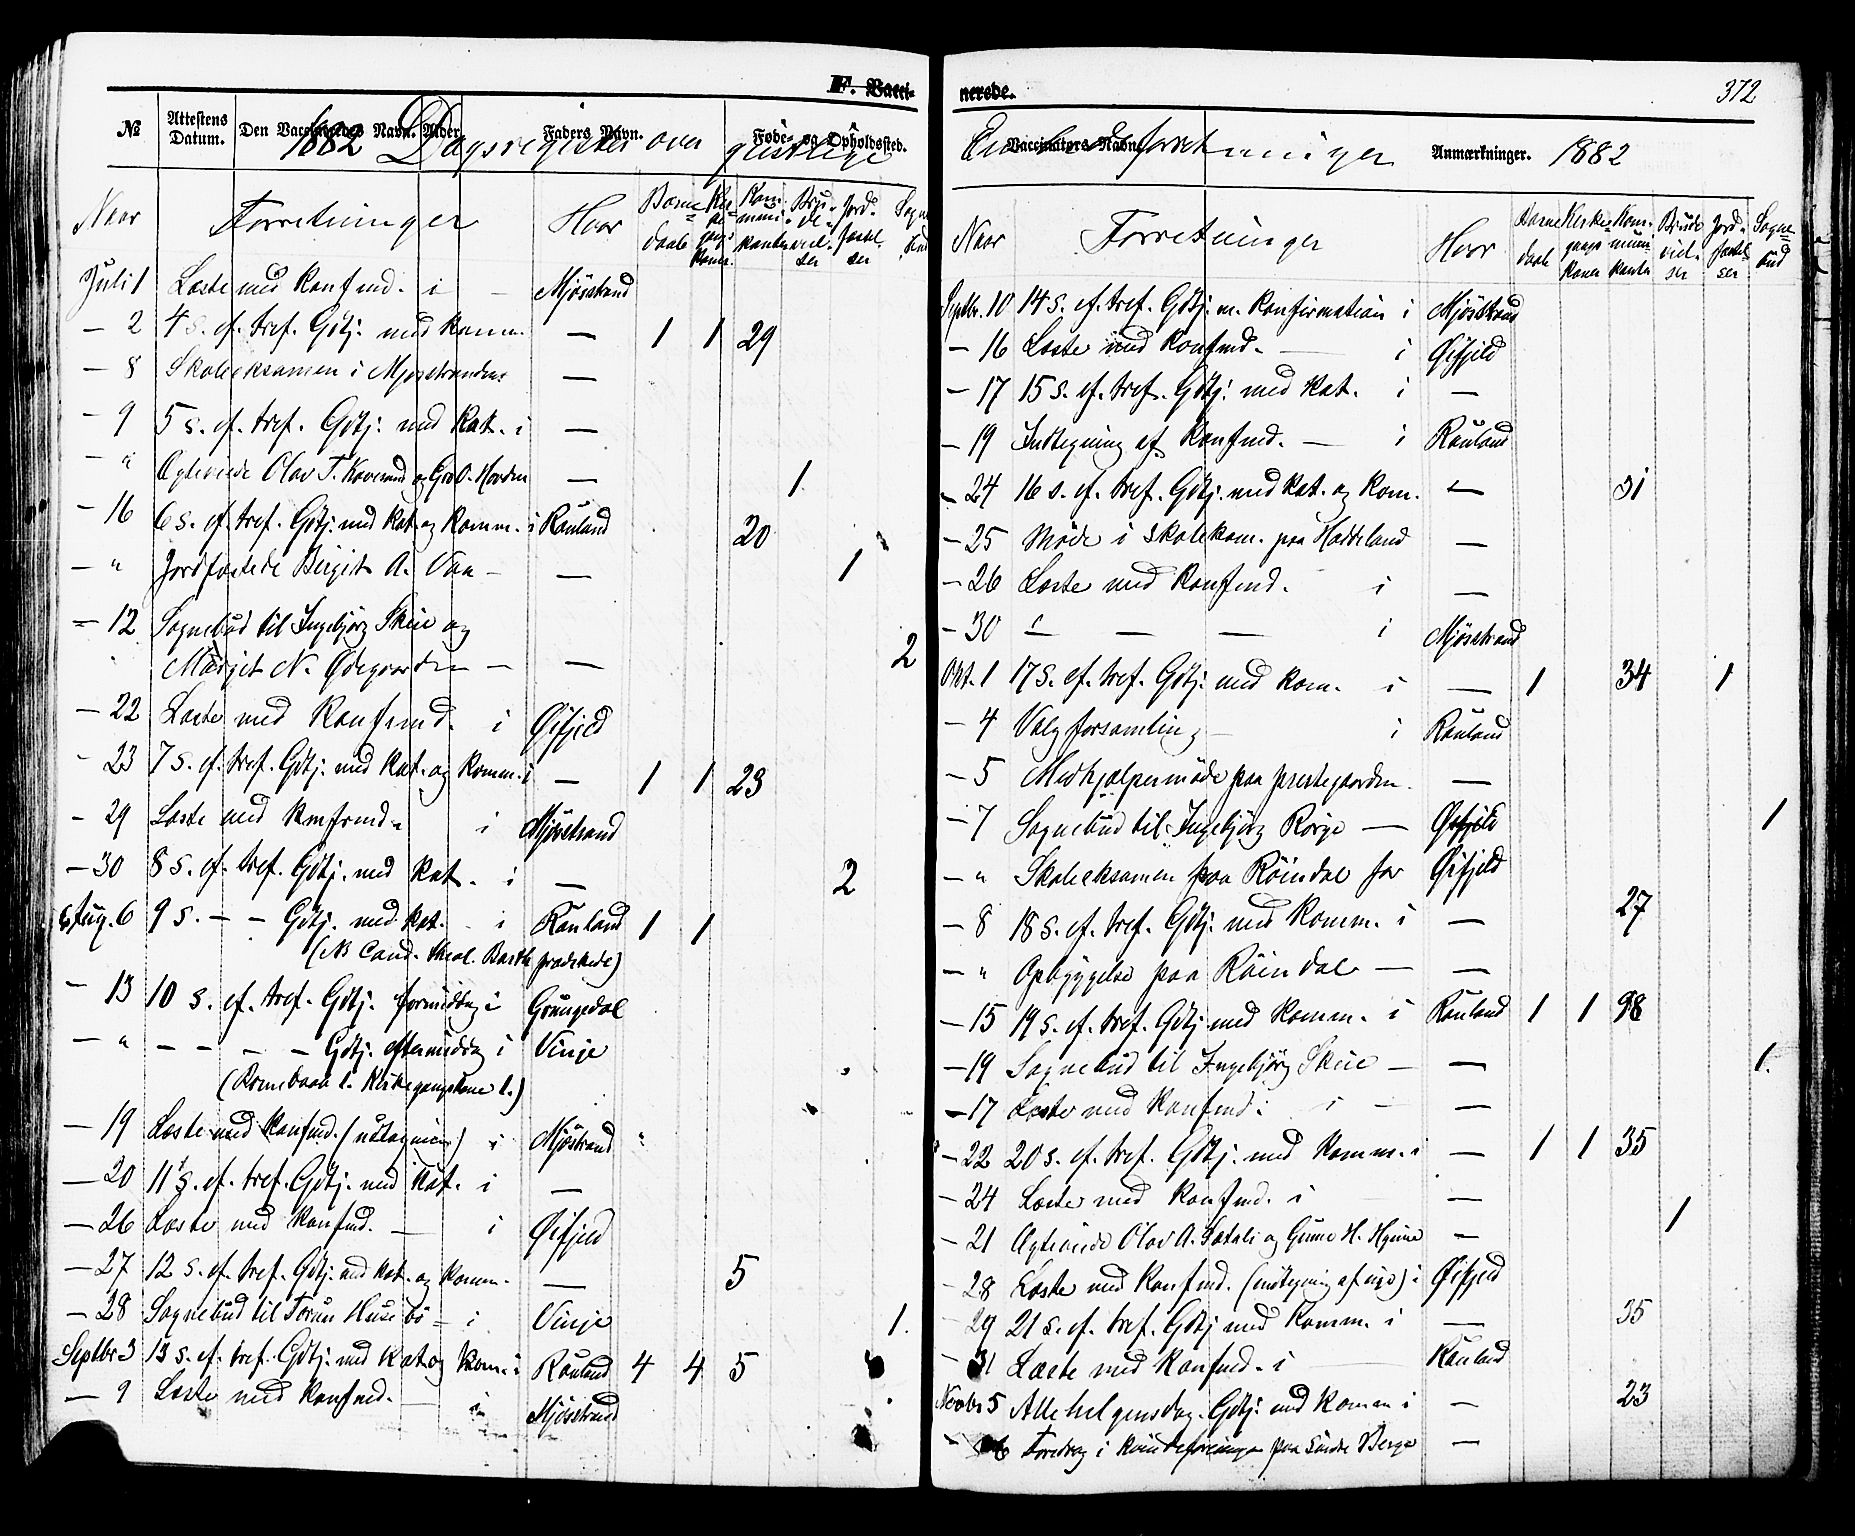 F. Vacci-
№ Attestens Datum. Den Vaccineredes Navn. Alder. Faders Navn. Føde- og Opholdssted.
1882 Dagsregister over geistlige
Naar Forretninger Hvor Barne daab Kir ke gangs koner Kom muni kanter Bru de viel ser Jord fæstel ser Sogne bud
Juli 1 Læste med Konfmd. i Mjösstrand
— 2 4 s. ef. tref. Gdtj. med Komm. — 1 1 29
— 8 Skoleeksamen i Mjösstranden —
— 9 5 s. ef. tref. Gdtj. med Kat. i —
— " Egteviede Olav T. og Gro O. Hovden — 1.
— 16 6 s. ef. tref. Gdtj. med Kat. og Komm. i Rauland 20
— " Jordfæstede Birgit A. Vaa — — 1
— 12 Sognebud til Ingebjörg Skiie og
Margit N. Ødegaarden — — 2
— 22 Læste med Konfmd. i Øifjeld
— 23 7 s. ef. tref. Gdtj. med Kat. og Komm. i — 1 1 23
— 29 Læste med Konfmd. i Mjösstrand
— 30 8 s. ef. tref. Gdtj. med Kat. i — 2
Aug. 6 9 s. — — Gdtj. med Kat. i Rauland 1 1
(NB Cand. theol. Barth prædikede)
— 13 10 s. ef. tref. Gdtj. formiddag i Grungedal
— " — — — — Gdtj. eftermiddag i Vinje
(Barnedaab 1. Kirkegangskone 1.)
— 19 Læste med Konfmd. (udtagning) i Mjösstrand "
— 20 11 s. ef. tref. Gdtj. med Kat. i —
— 26 Læste med Konfmd. — i Øifjeld
— 27 12 s. ef. tref. Gdtj. med Kat. og Komm. — 5
— 28 Sognebud til Torun Husebö — i Vinje 1.
Septbr 3 13 s. ef. tref. Gdtj. med Kat. og Kom. i Rauland 4 4 5
— 9 Læste med Konfmd. — i Mjösstrand
nerede. 372
Vaccinators Navn. Anmærkninger.
Embedsforretninger 1882
Naar Forretninger Hvor Barne daab Kirke gangs koner Kom- muni- kanter Brude viel- ser Jord- fæstel- ser Sogne bud
Septbr. 10 14 s. ef. tref. Gdtj. m. Konfirmation i Mjösstrand
— 16 Læste med Konfmd. — i Øifjeld
— 17 15 s. ef. tref. Gdtj. med Kat. i —
— 19 Indtegning af Konfmd. — i Rauland
— 24 16 s. ef. tref. Gdtj. med Kat. og Kom. — 31
— 25 Möde i Skolekom. paa Haddeland —
— 26 Læste med Konfmd. i —
— 30 — — — i Mjösstrand
Okt. 1 17 s. ef. tref. Gdtj. med Kom. i — 1 34 1
— 4 Valgforsamling — i Rauland
— 5 Medhjælpermöde paa prestegaarden. —
— 7 Sognebud til Ingebjörg Rorge — Øifjeld 1
— " Skoleeksamen paa Röindal for Øifjeld
— 8 18 s. ef. tref. Gdtj. med Komm. i — 27
— " Opbyggelse paa Röindal — —
— 15 19 s. ef. tref. Gdtj. med Komm. i Rauland 1 1 98
— 19 Sognebud til Ingebjörg Skiie — — 1.
— 17 Læste med Konfmd. i — —
— 22 20 s. ef. tref. Gdtj. med Komm. i — 1 1 35
— 24 Læste med Konfmd. i —
— 21 Egteviede Olav A. og H. — 1
28 Læste med Konfmd. (indtegning af nye) i Øifjeld
— 29 21 s. ef. tref. Gdtj. med Komm. i — 35
— 31 Læste med Konfmd. i Rauland
Novbr 5 Allehelgensdag. Gdtj. med Komm. i — 23
— 6 Foredrag i Kvindeforeningen paa Söndre Berge —